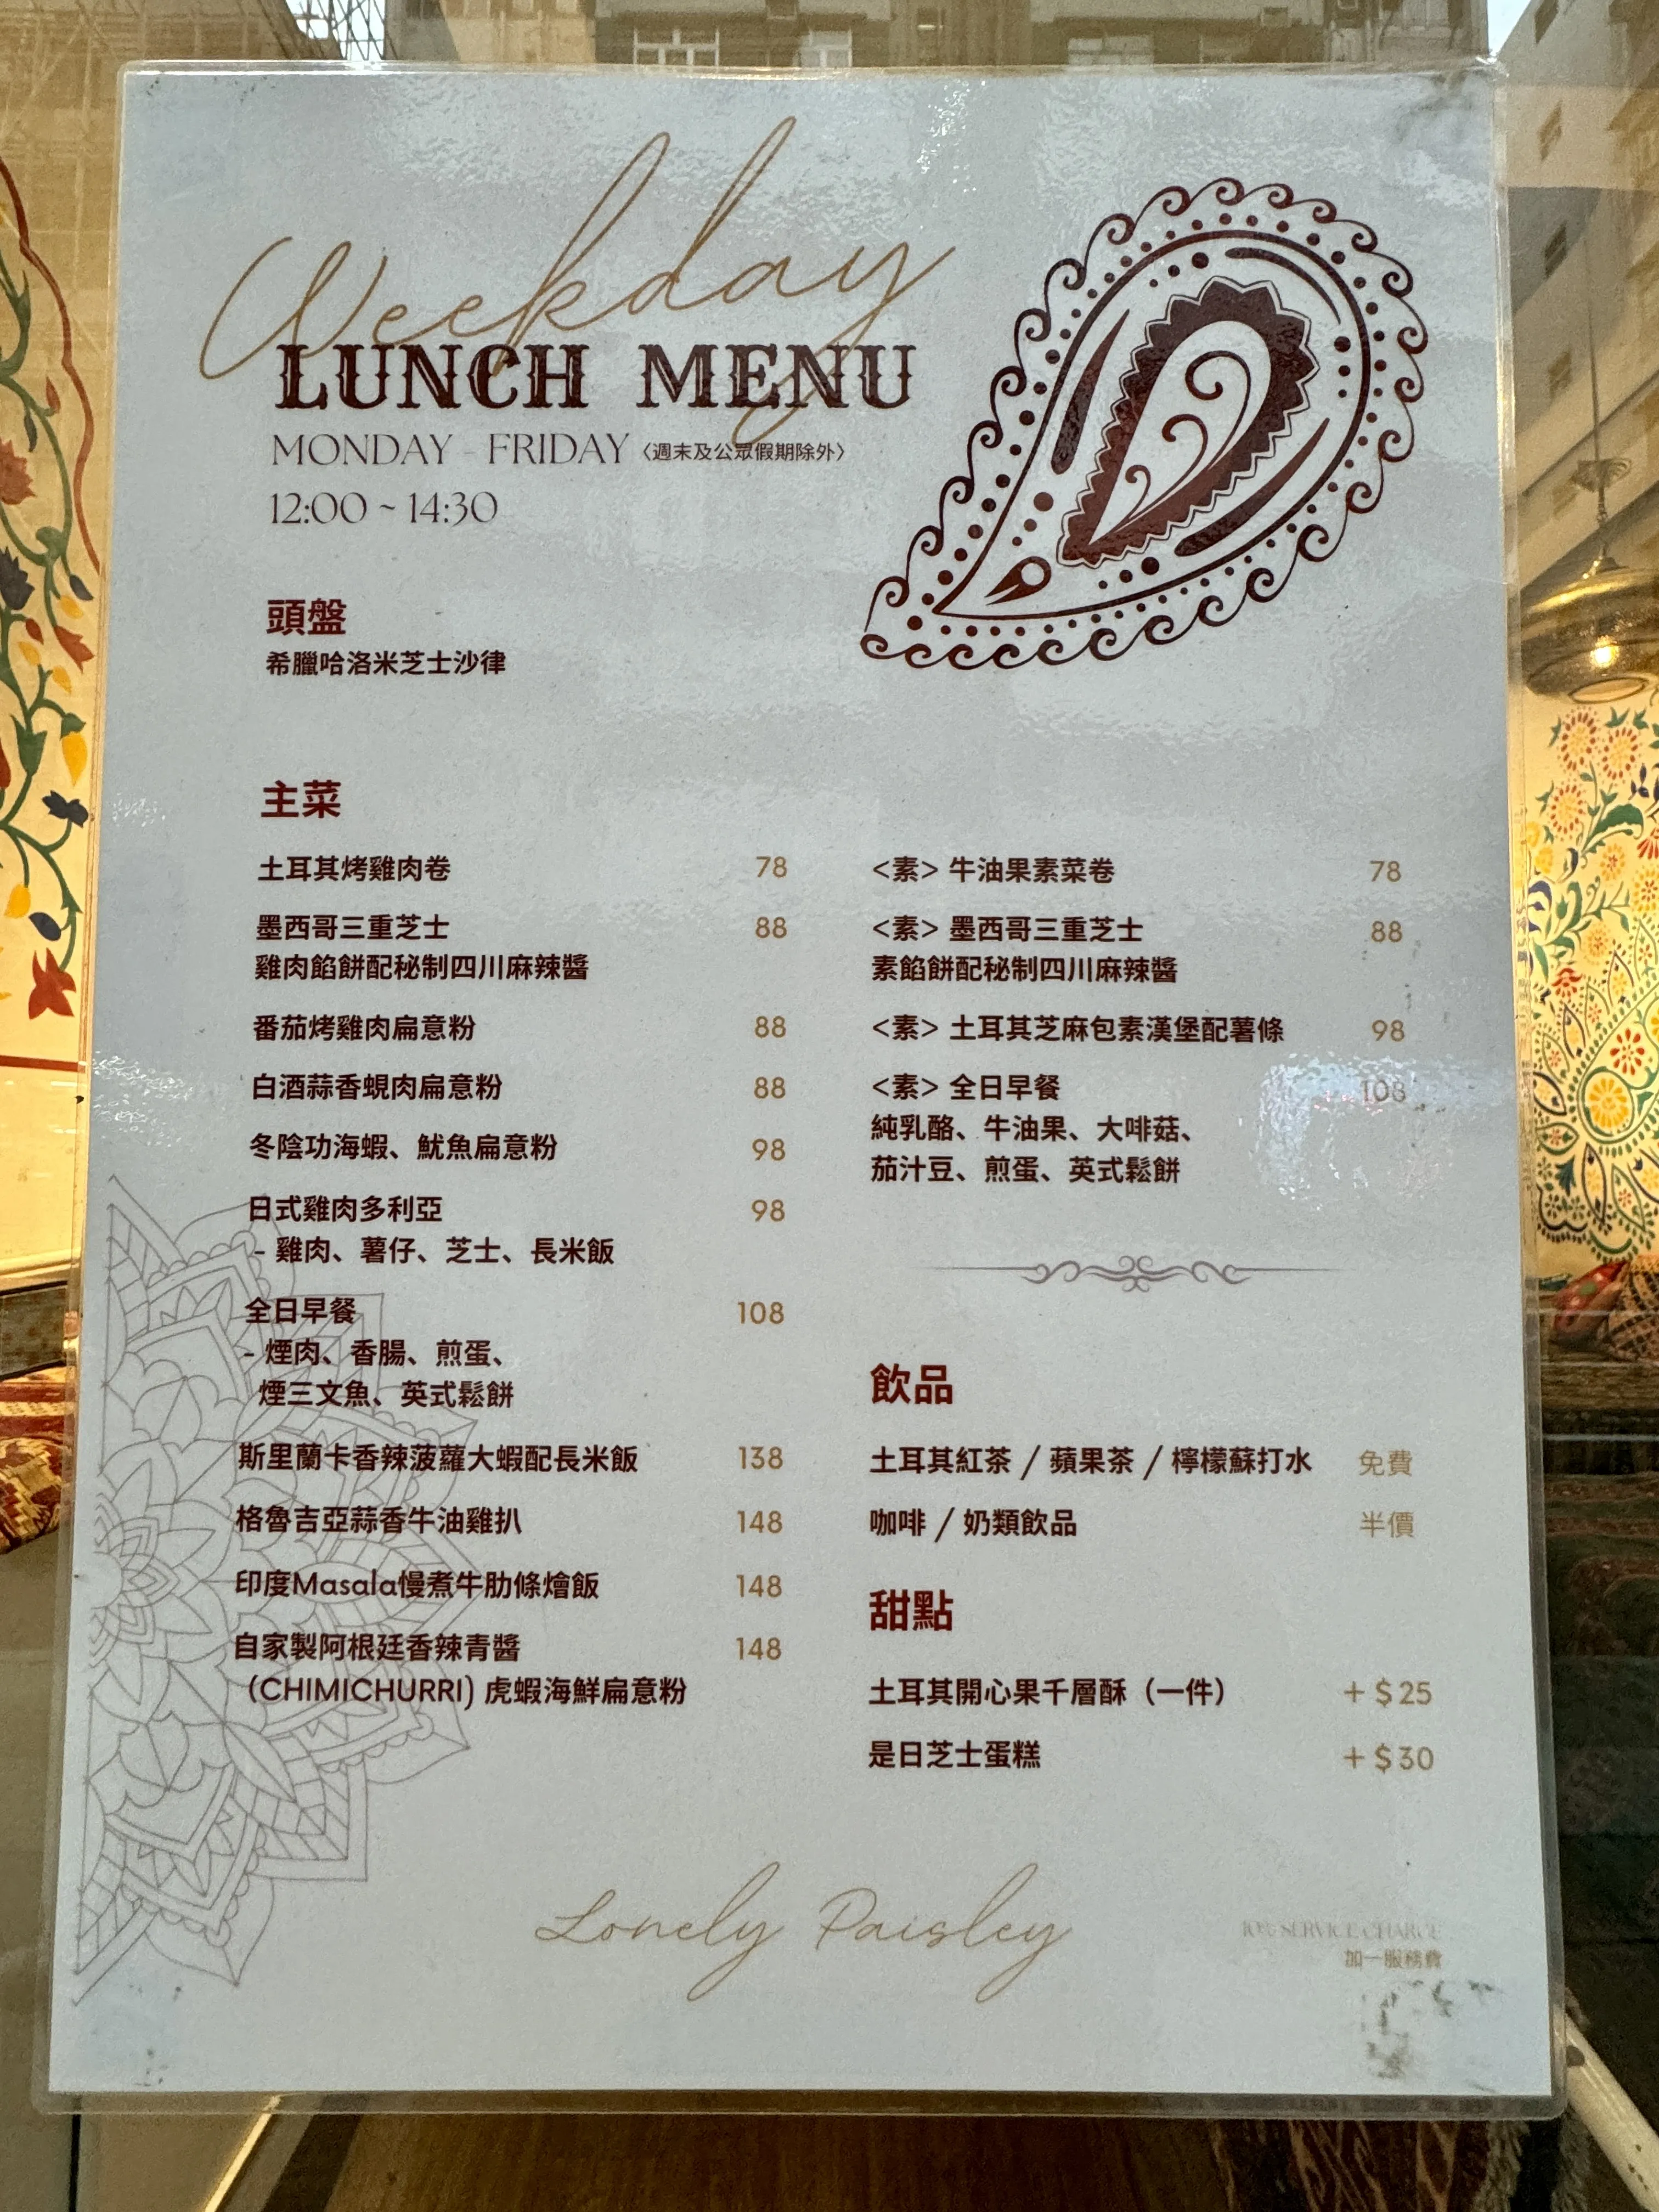 Weekday
LUNCH MENU
MONDAY - FRIDAY〈週末及公眾假期除外〉
12:00 ~ 14:30
頭盤
希臘哈洛米芝士沙律
主菜
土耳其烤雞肉卷 78
墨西哥三重芝士 88
雞肉餡餅配秘制四川麻辣醬
番茄烤雞肉扁意粉 88
白酒蒜香蜆肉扁意粉 88
冬陰功海蝦、魷魚扁意粉 98
日式雞肉多利亞 98
- 雞肉、薯仔、芝士、長米飯
全日早餐 108
- 煙肉、香腸、煎蛋、
煙三文魚、英式鬆餅
斯里蘭卡香辣菠蘿大蝦配長米飯 138
格魯吉亞蒜香牛油雞扒 148
印度Masala慢煮牛肋條燴飯 148
自家製阿根廷香辣青醬 148
(CHIMICHURRI) 虎蝦海鮮扁意粉
<素> 牛油果素菜卷 78
<素> 墨西哥三重芝士 88
素餡餅配秘制四川麻辣醬
<素> 土耳其芝麻包素漢堡配薯條 98
<素> 全日早餐 108
純乳酪、牛油果、大啡菇、
茄汁豆、煎蛋、英式鬆餅
飲品
土耳其紅茶 / 蘋果茶 / 檸檬蘇打水 免費
咖啡 / 奶類飲品 半價
甜點
土耳其開心果千層酥（一件） +$25
是日芝士蛋糕 +$30
Lonely Paisley
10% SERVICE CHARGE
加一服務費